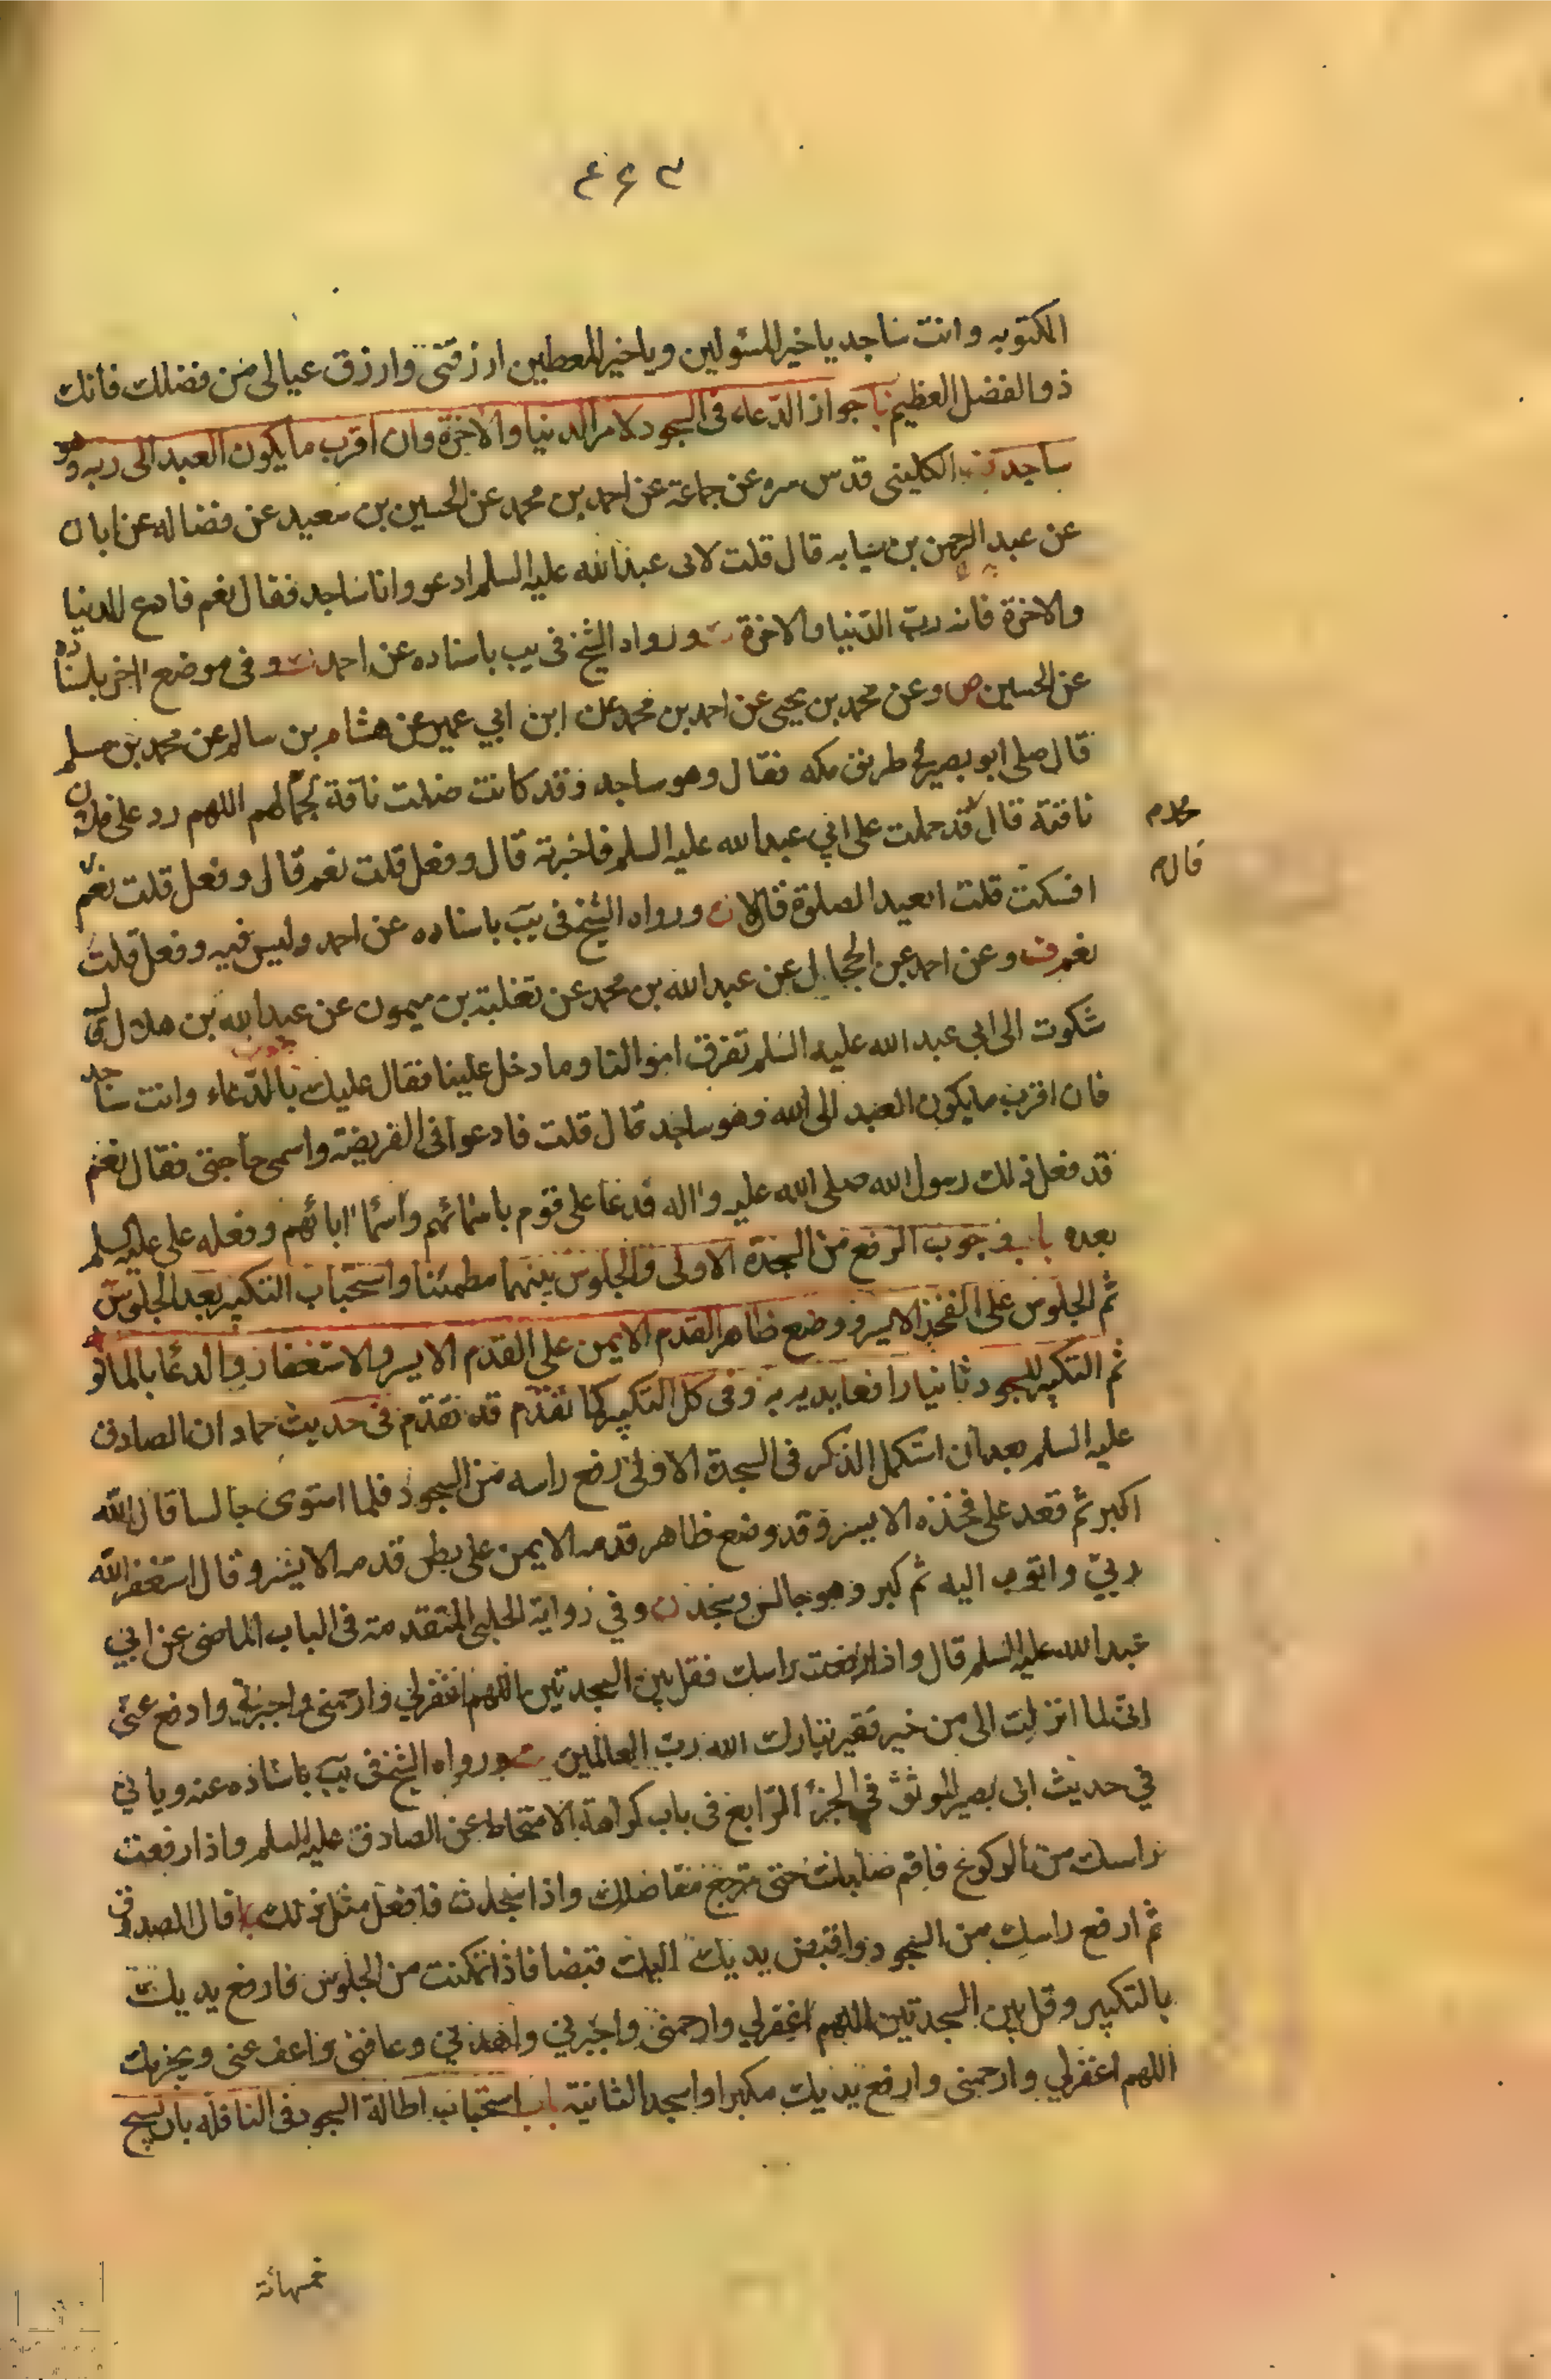 ٤٤٣
المكتوبه وانت ساجد يا خير المسئولين ويا خير المعطين ارزقنى وارزق عيالى من فضلك فانك
ذو الفضل العظيم باب جواز الدعاء فى السجود لامر الدنيا والاخرة وان اقرب ما يكون العبد الى ربه وهو
ساجد الكلينى قدس سره عن جماعة عن احمد بن محمد عن الحسين بن سعيد عن فضاله عن ابان
عن عبد الرحمن بن سيابه قال قلت لابى عبد الله عليه السلم ادعو وانا ساجد فقال نعم فادع للدنيا
والاخرة فانه رب الدنيا والاخرة ورواه الشيخ فى يب باسناده عن احمد وفى موضع اخر باسناده
عن الحسين ص وعن محمد بن يحيى عن احمد بن محمد عن ابن ابي عمير عن هشام بن سالم عن محمد بن مسلم
قال صلى ابو بصير فى طريق مكه فقال وهو ساجد وقد كانت ضلت ناقة لجمالهم اللهم رد على فلان
ناقته قال قد حملت على ابي عبد الله عليه السلم فاخبرته قال وفعل قلت نعم قال وفعل قلت نعم
قال فسكت قلت افعيد الصلوة قال لا ورواه الشيخ فى يب باسناده عن احمد وليس فيه وفعل قلت
نعم وعن احمد عن الحجال عن عبد الله بن محمد عن ثعلبة بن ميمون عن عبد الله بن هلال قال
شكوت الى ابي عبد الله عليه السلم تفرق اموالنا وما دخل علينا فقال عليك بالدعاء وانت ساجد
فان اقرب ما يكون العبد الى الله وهو ساجد قال قلت فادعو فى الفريضة واسمى حاجتى فقال نعم
قد فعل ذلك رسول الله صلى الله عليه واله فدعا على قوم باسمائهم واسماء ابائهم وفعله على عليه السلم
بعده باب وجوب الرفع من السجدة الاولى والجلوس بينهما مطمئنا واستحباب التكبير بعد الجلوس
ثم الجلوس على الفخذ الايسر ووضع ظاهر القدم الايمن على القدم الايسر والاستغفار والدعا بالماثور
ثم التكبير للسجود ثانيا رافعا يديه به وفى كل التكبير كما تقدم قد تقدم فى حديث حماد ان الصادق
عليه السلم بعد ان استكمل الذكر فى السجدة الاولى رفع راسه من السجود فلما استوى جالسا قال الله
اكبر ثم قعد على فخذه الايسر وقد وضع ظاهر قدمه الايمن على بطن قدمه الايسر وقال استغفر الله
ربي واتوب اليه ثم كبر وهو جالس وسجد وفي رواية الحلبى المتقدمة فى الباب الماضى عن ابي
عبد الله عليه السلم قال واذا رفعت راسك فقل بين السجدتين اللهم اغفر لي وارحمنى واجبرني وادفع عنى
انى لما انزلت الى من خير فقير تبارك الله رب العالمين ورواه الشيخ فى يب باسناده عنه وياتي
في حديث ابى بصير الموثق في الجزء الرابع فى باب كراهة الامتخاط عن الصادق عليه السلم واذا رفعت
راسك من الركوع فاقم صلبك حتى ترجع مفاصلك واذا سجدت فافعل مثل ذلك قال الصدوق
ثم ارفع راسك من السجود واقبض يديك اليك قبضا فاذا تمكنت من الجلوس فارفع يديك
بالتكبير وقل بين السجدتين اللهم اغفر لي وارحمنى واجبرني واهدني وعافنى واعف عنى ويجزيك
اللهم اغفر لي وارحمنى وارفع يديك مكبرا واسجد الثانية باب استحباب اطالة السجود فى النافله بان يسبح
خمسمائة